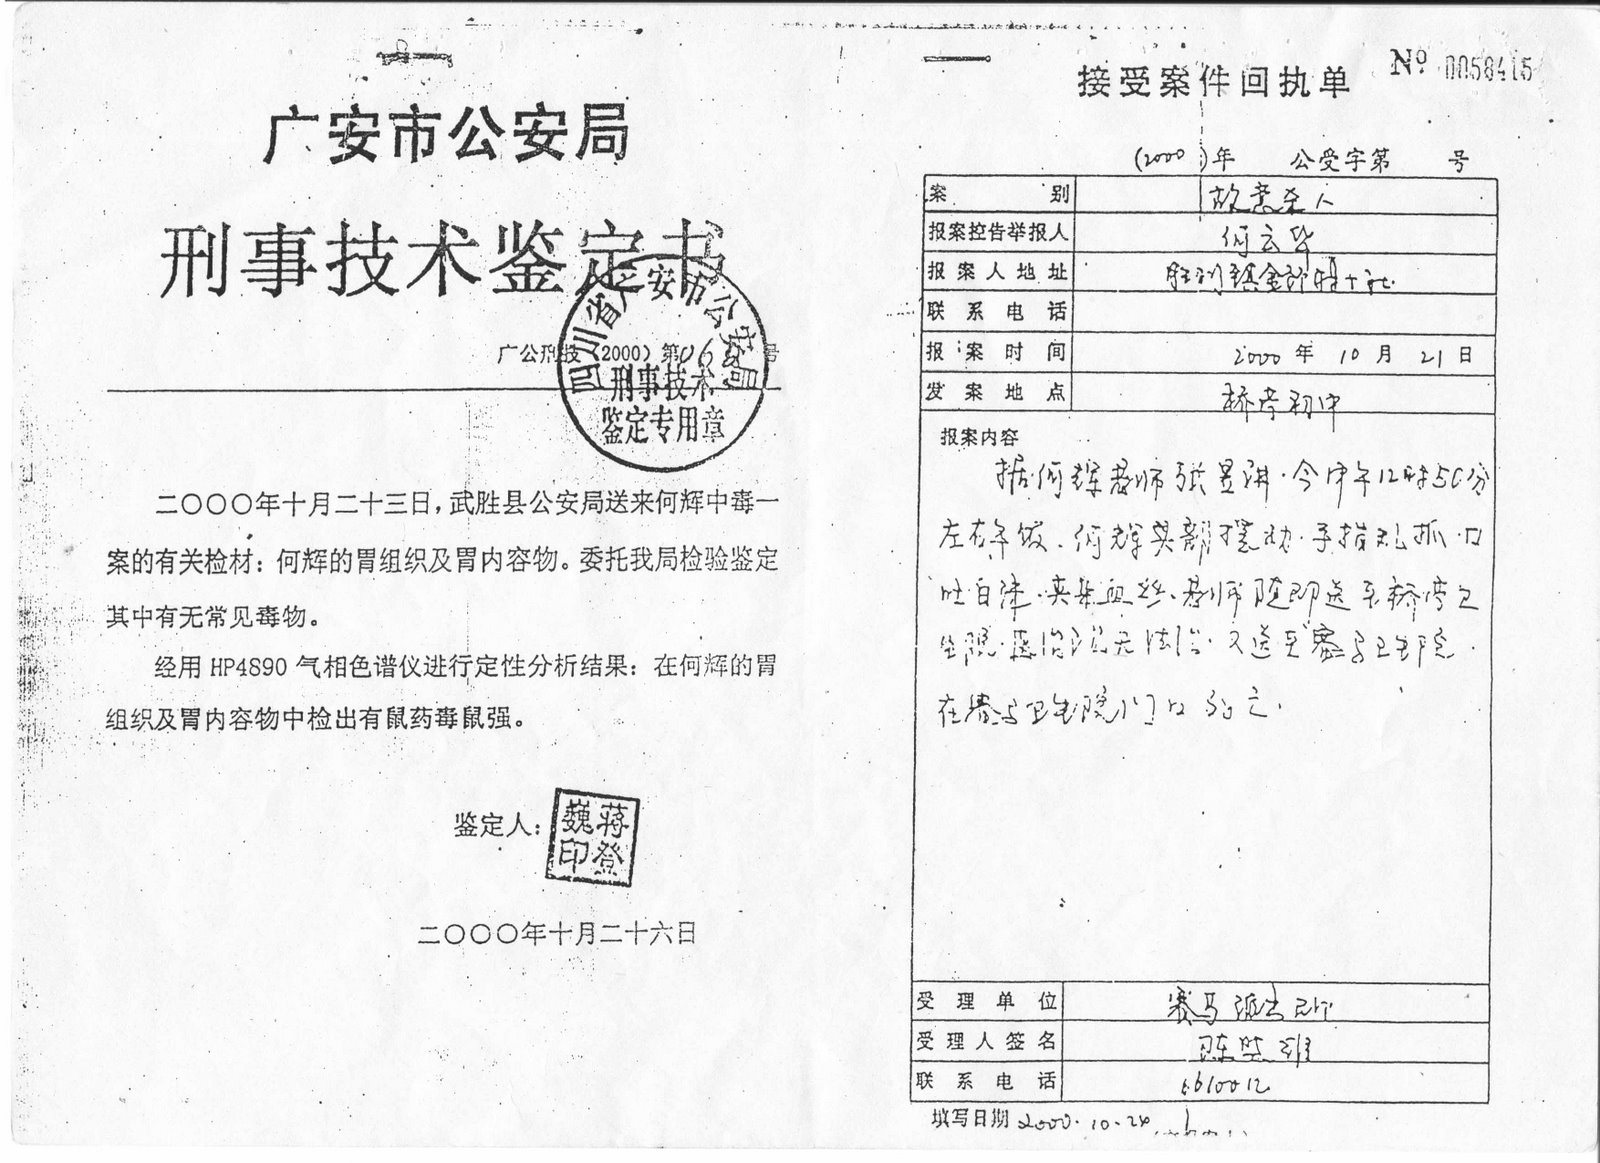 广安市公安局
刑事技术鉴定书
广公刑技（2000）第06号
四川省广安市公安局
刑事技术
鉴定专用章
二〇〇〇年十月二十三日，武胜县公安局送来何辉中毒一
案的有关检材：何辉的胃组织及胃内容物。委托我局检验鉴定
其中有无常见毒物。
经用 HP4890 气相色谱仪进行定性分析结果：在何辉的胃
组织及胃内容物中检出有鼠药毒鼠强。
鉴定人：
蒋登
巍印
二〇〇〇年十月二十六日
接受案件回执单
Nº 0058415
(2000)年 公受字第 号
案别 故意杀人
报案控告举报人 何云华
报案人地址
联系电话
报案时间 2000 年 10 月 21 日
发案地点 桥亭初中
报案内容
据何辉老师张昱讲·今中午12时50分
左右午饭、何辉头部摆动·手指乱抓·口
吐白沫·老师随即送至桥亭卫
生院·医治说无法治·又送至赛马卫生院·
在赛马卫生院门口死亡·
受理单位 赛马派出所
受理人签名 陈
联系电话 6610012
填写日期 2000.10.24